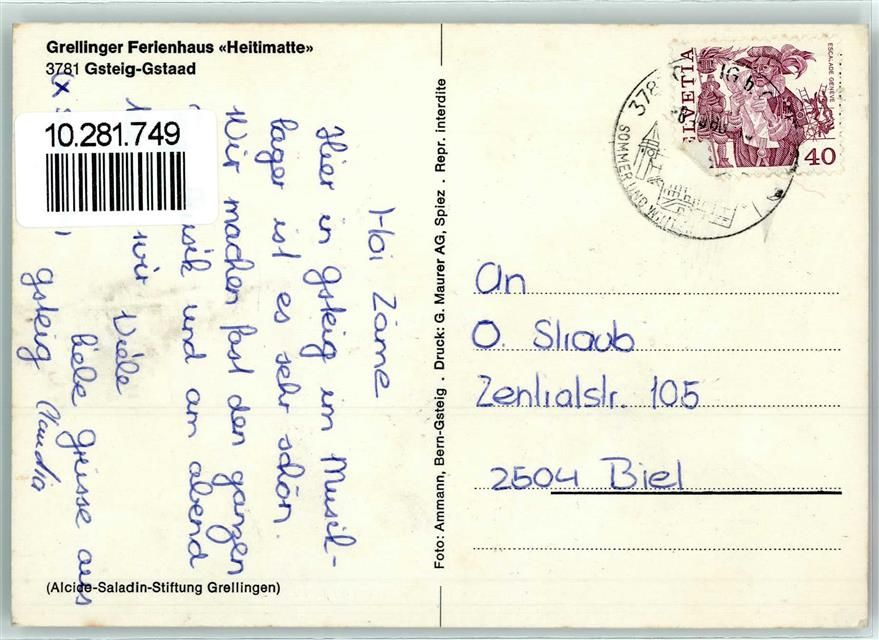 Grellinger Ferienhaus «Heitimatte»
3781 Gsteig-Gstaad
10.281.749
Hoi Zäme
Hier in Gsteig im Musik-
lager ist es sehr schön.
Wir machen fast den ganzen
und am abend
wir Viele
liebe grüsse aus
gsteig Claudia
(Alcide-Saladin-Stiftung Grellingen)
Foto: Ammann, Bern-Gsteig . Druck: G. Maurer AG, Spiez . Repr. interdite
HELVETIA
ESCALADE GENÈVE
40
378
SOMMER UND WINTER
An
O. Straub
Zentralstr. 105
2504 Biel